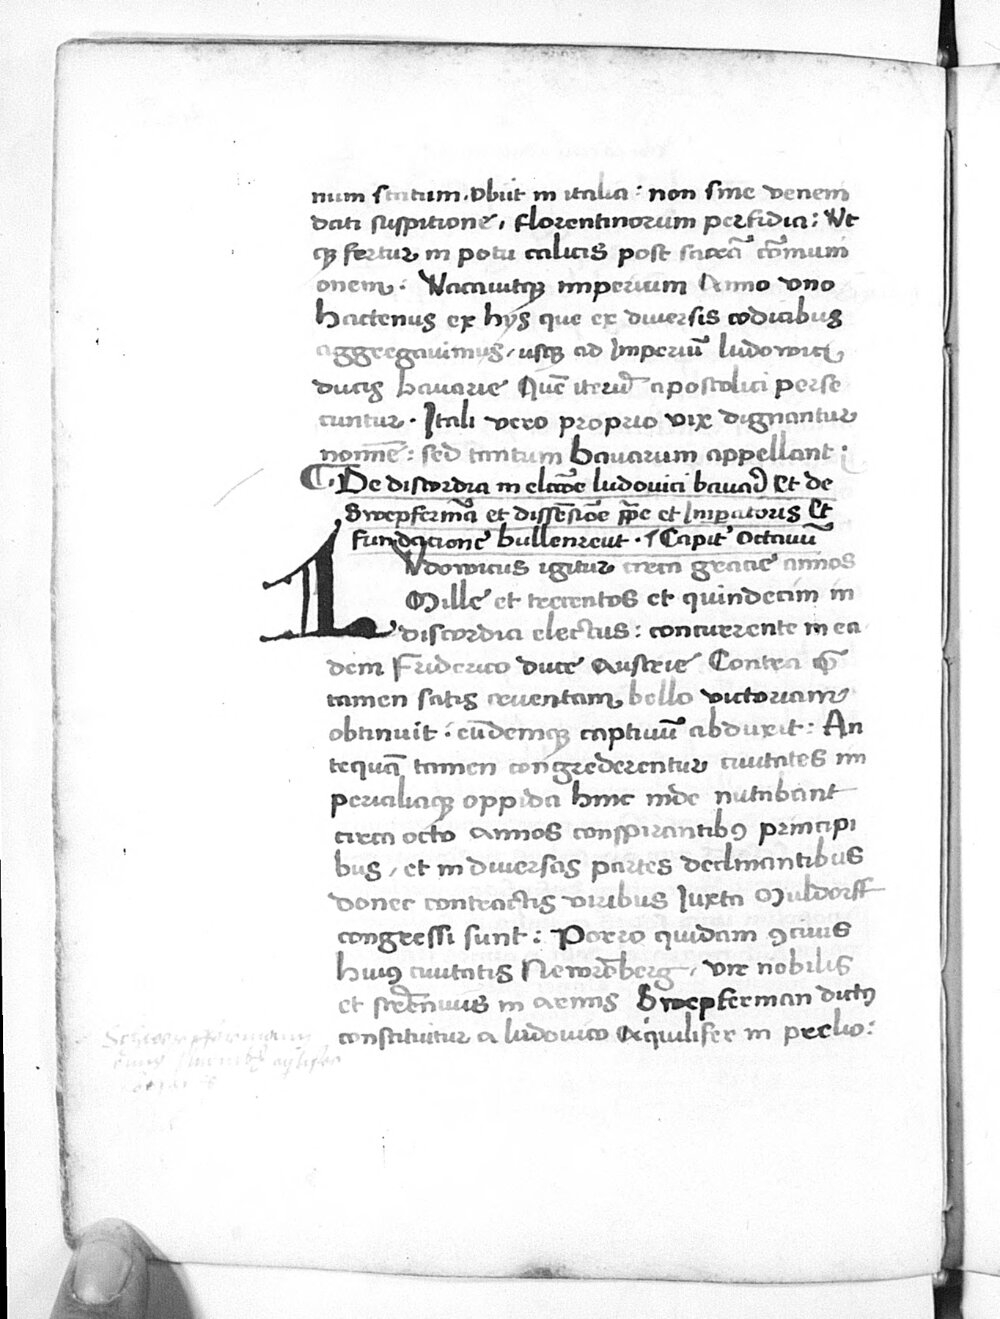 num statum. Obiit in italia: non sine venem
dati suspitione, florentinorum perfidia: Ut
qȝ fertur in potu calicis post sacrā cōmuni
onem. Vacauitqȝ imperium Anno vno
hactenus ex hijs que ex diuersis codicibus
aggregauimus, usqȝ ad Imperiū ludowici
ducis bauarie Quē iterū apostolici perse
cuntur. Itali vero proprio vix dignantur
nomīe: sed tantum bauarum appellant:
De discordia in elccōe ludouici bauari Et de
Swepfermā et dissēsiōe ppe et Imperatoris Et
fundacione bullenreut. Capit' Octauū
LVdowicus igitur circa gracie annos
Mille et trecentos et quindecim in
discordia electus: concurrente in ea
dem Friderico duce Austrie Contra quē
tamen satis cruentam bello victoriam
obtinuit: eūdemqȝ captiuū abduxit: An
tequā tamen congrederentur ciuitates im
perialiaqȝ oppida hinc inde nutabant
circa octo annos conspirantibꝰ principi
bus, et in diuersas partes declinantibus
donec contractis viribus Iuxta Muldorff
congressi sunt: Porro quidam ꝯciuis
huiꝰ ciuitatis Newrēberg, vir nobilis
et strēnuus in armis Swepferman dictꝰ
constituitur a ludouico Aquilifer in prelio:
Schweppfermann